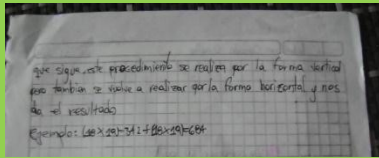 que sigue, este procedimiento se realiza por la forma vertical
pero tambien se vuelve a realizar por la forma horizontal y nos
da el resultado
Ejemplo: (18 x 19)=342+(18 x 19)=684